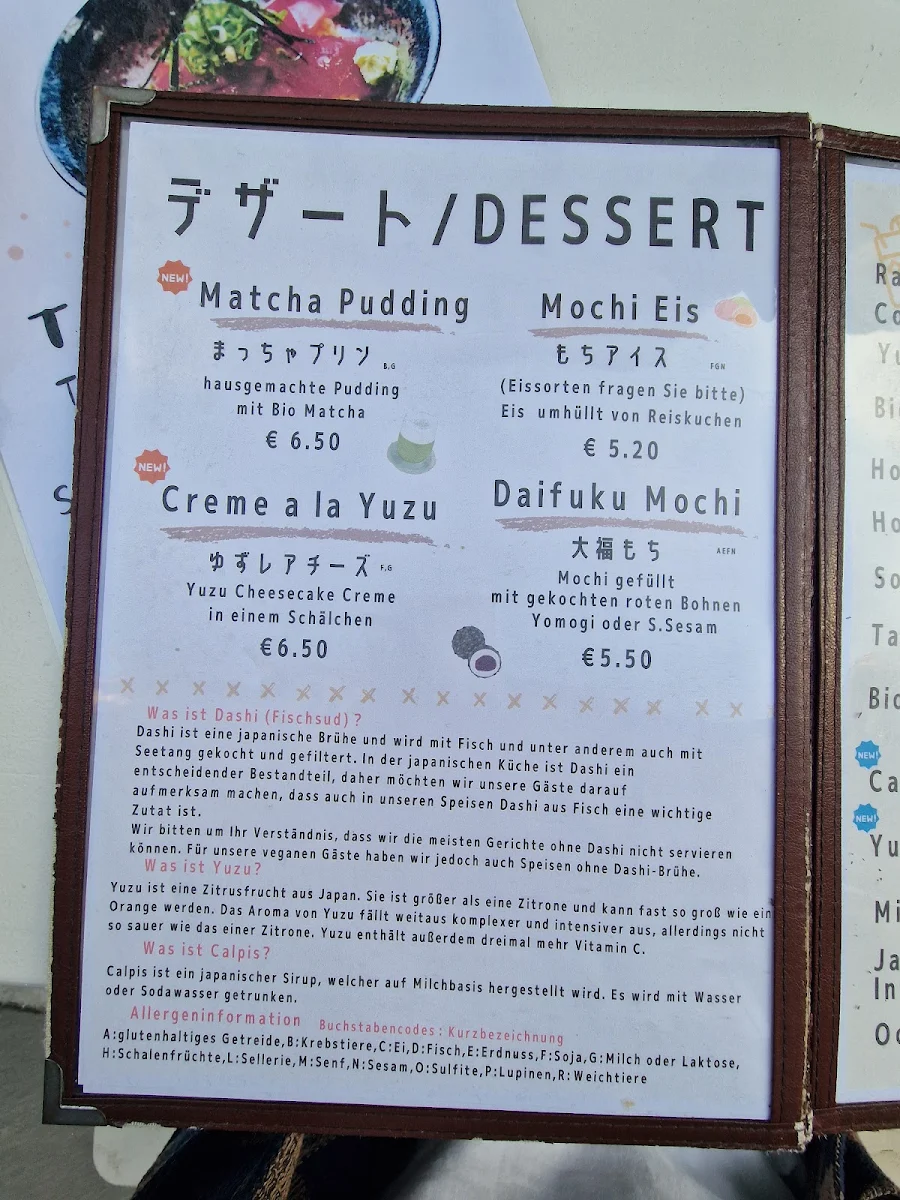 デザート/DESSERT
NEW!
Matcha Pudding
まっちゃプリン B,G
hausgemachte Pudding
mit Bio Matcha
€ 6.50
Mochi Eis
もちアイス FGN
(Eissorten fragen Sie bitte)
Eis umhüllt von Reiskuchen
€ 5.20
NEW!
Creme a la Yuzu
ゆずレアチーズ F,G
Yuzu Cheesecake Creme
in einem Schälchen
€6.50
Daifuku Mochi
大福もち AEFN
Mochi gefüllt
mit gekochten roten Bohnen
Yomogi oder S.Sesam
€5.50
Was ist Dashi (Fischsud) ?
Dashi ist eine japanische Brühe und wird mit Fisch und unter anderem auch mit
Seetang gekocht und gefiltert. In der japanischen Küche ist Dashi ein
entscheidender Bestandteil, daher möchten wir unsere Gäste darauf
aufmerksam machen, dass auch in unseren Speisen Dashi aus Fisch eine wichtige
Zutat ist.
Wir bitten um Ihr Verständnis, dass wir die meisten Gerichte ohne Dashi nicht servieren
können. Für unsere veganen Gäste haben wir jedoch auch Speisen ohne Dashi-Brühe.
Was ist Yuzu?
Yuzu ist eine Zitrusfrucht aus Japan. Sie ist größer als eine Zitrone und kann fast so groß wie ein
Orange werden. Das Aroma von Yuzu fällt weitaus komplexer und intensiver aus, allerdings nicht
so sauer wie das einer Zitrone. Yuzu enthält außerdem dreimal mehr Vitamin C.
Was ist Calpis?
Calpis ist ein japanischer Sirup, welcher auf Milchbasis hergestellt wird. Es wird mit Wasser
oder Sodawasser getrunken.
Allergeninformation Buchstabencodes : Kurzbezeichnung
A:glutenhaltiges Getreide,B:Krebstiere,C:Ei,D:Fisch,E:Erdnuss,F:Soja,G:Milch oder Laktose,
H:Schalenfrüchte,L:Sellerie,M:Senf,N:Sesam,O:Sulfite,P:Lupinen,R:Weichtiere
Ra
Co
Yu
Bi
Ho
Ho
So
Ta
Bio
NEW!
Ca
NEW!
Yu
Mi
Ja
In